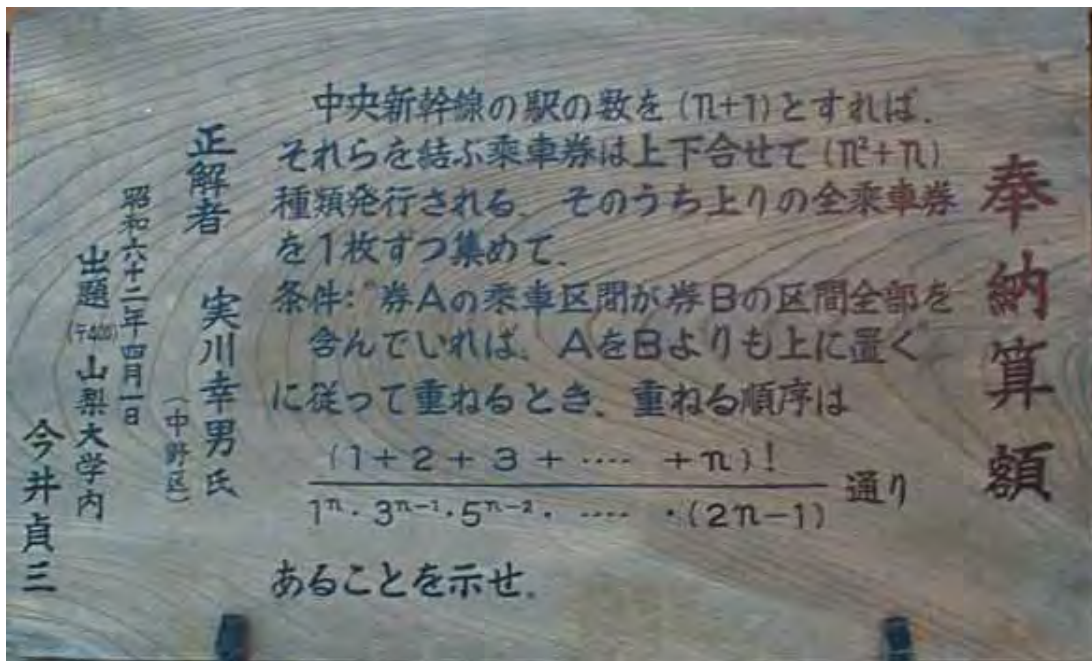 奉納算額
中央新幹線の駅の数を(n+1)とすれば.
それらを結ぶ乗車券は上下合せて(n²+n)
種類発行される. そのうち上りの全乗車券
を1枚ずつ集めて.
条件:"券Aの乗車区間が券Bの区間全部を
含んでいれば, AをBよりも上に置く"
に従って重ねるとき, 重ねる順序は
(1+2+3+‥‥+n)!
1ⁿ・3ⁿ⁻¹・5ⁿ⁻²・‥‥・(2n-1)
通り
あることを示せ.
正解者 実川幸男氏
(中野区)
昭和六十二年四月一日
出題(〒400)山梨大学内
今井貞三